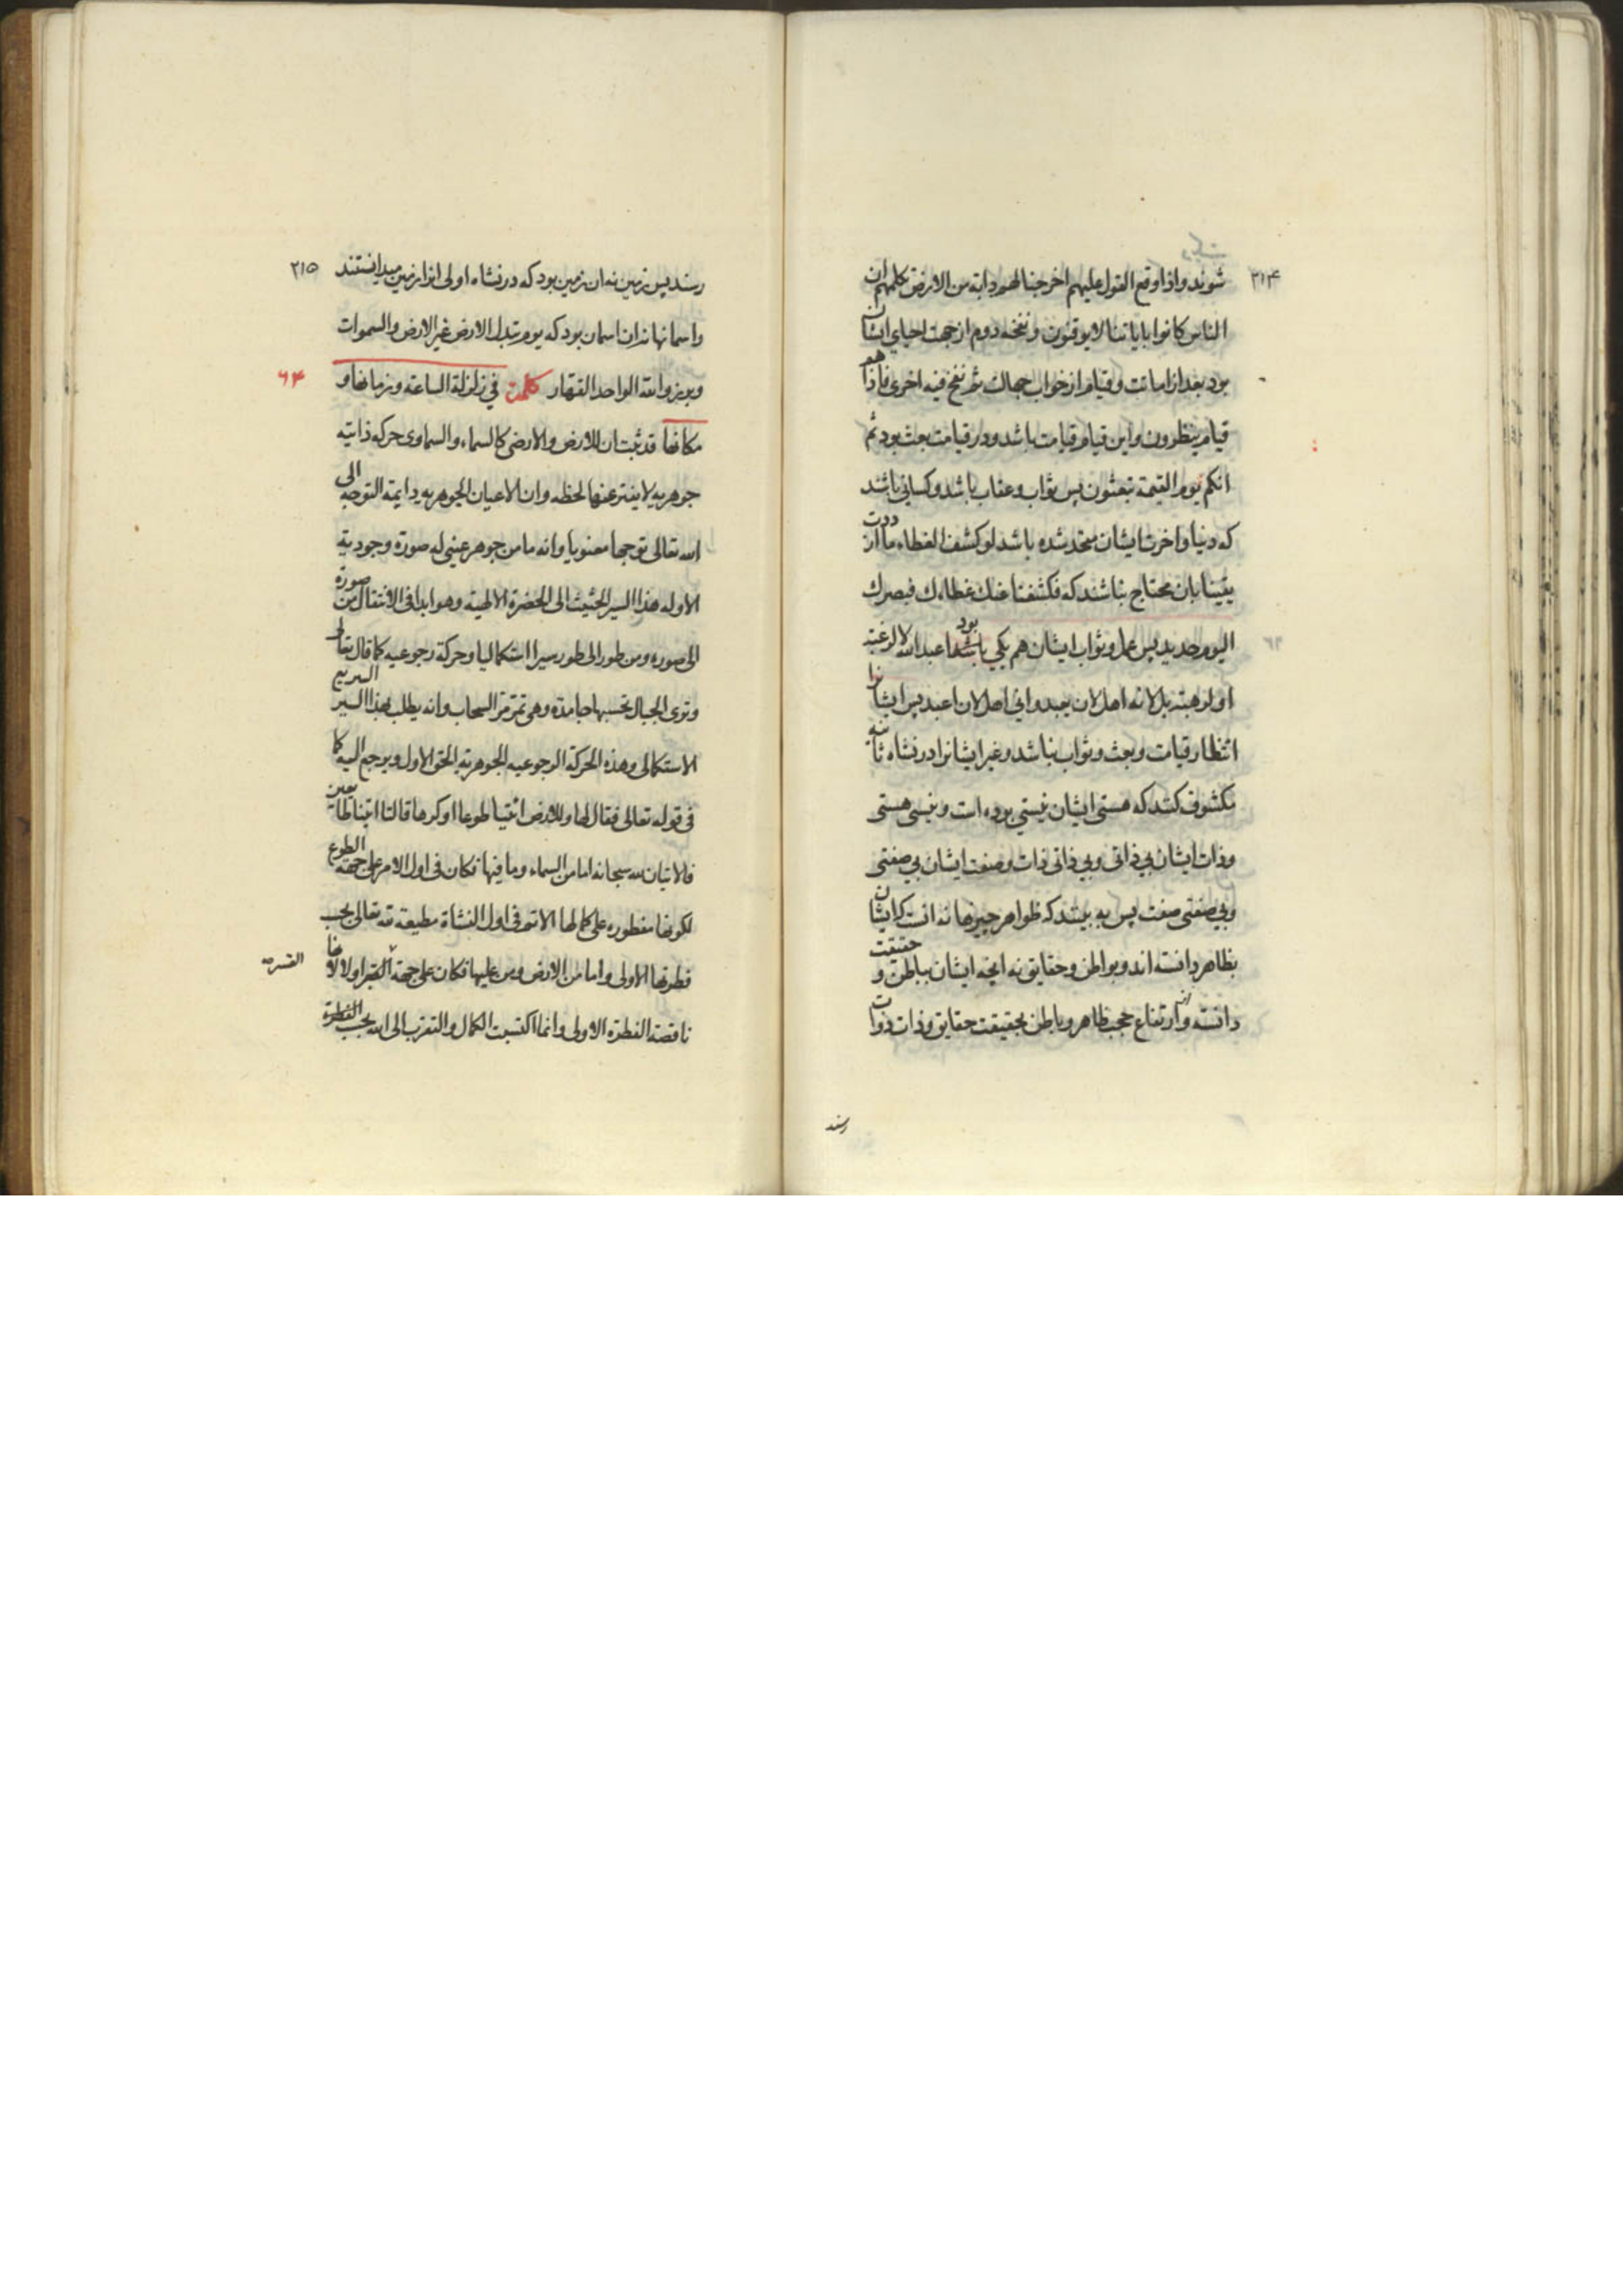 ٣١۴
شوند واذا وقع القول عليهم اخرجنا لهم دابة من الارض تكلمهم ان
الناس كانوا باياتنا لا يوقنون ونفخه دوم از جهت احياي ايشان
بود بعد از اماتت وقيام از خواب جهالت ثم نفخ فيه اخرى فاذا هم
قيام ينظرون واين قيام قيامت باشد ودر قيامت بعث بود ثم
انكم يوم القيمة تبعثون پس ثواب وعقاب باشد وكساني باشند
كه دنيا واخرت ايشان متحد شده باشد لو كشف الغطاء ما ازددت
يقينا بان محتاج نباشند كه فكشفنا عنك غطاءك فبصرك
اليوم حديد پس عمل وثواب ايشان هم يكي باشد بود ما عبد الله لا لرغبة
او لرهبة بل لانه اهل لان يعبد واني اهل لان اعبد پس ايشانرا
انتظار قيامت وبعث وثواب نباشد وغير ايشانرا در نشاه ثانيه
مكشوف كند كه هستي ايشان نيستي بوده است ونيستي هستي
وذات ايشان بي ذاتى وبي ذاتى ذات وصفت ايشان بي صفتى
وبي صفتى صفت پس به بينند كه ظواهر چيزها نه انست كه ايشان
بظاهر دانسته اند وبواطن وحقايق نه انچه ايشان بباطن وحقيقت
دانسته واز ارتفاع حجب ظاهر وباطن بحقيقت حقايق وذات ذوات
رسند
٣١٥
رسند پس زمين نه ان زمين بود كه در نشاه اولى انرا زمين ميدانستند
واسمانها نه ان اسمان بود كه يوم تبدل الارض غير الارض والسموات
وبرزوا لله الواحد القهار كلمة في زلزلة الساعة وزمانها و
۶۴
مكانها قد ثبت ان للارض والارضى كالسماء والسماوى حركه ذاتيه
جوهريه لا يفتر عنها لحظه وان الاعيان الجوهريه دايمة التوجه الى
الله تعالى توجها معنويا وانه ما من جوهر عيني له صورة وجودية
الا وله هذا السير الحثيث الى الحضرة الالهية وهو ابدا في الانتقال من صورة
الى صوره ومن طور الى طور سيرا استكماليا وحركة رجوعيه كما قال تعالى
وترى الجبال تحسبها جامدة وهي تمر مر السحاب وانه يطلب بهذا السير السريع
الاستكمالى وهذه الحركة الرجوعيه الجوهرية الحق الاول ويرجع اليه كما
في قوله تعالى فقال لها وللارض ائتيا طوعا او كرها قالتا اتينا طائعين
فالاتيان لله سبحانه اما من السماء وما فيها فكان في اول الامر على جهة الطوع
لكونها مفطوره على كمالها الاتم في اول النشاة مطيعة لله تعالى بحسب
فطرتها الاولى واما من الارض ومن عليها فكان على جهة القهر اولا لانها
القسر
ناقصة الفطرة الاولى وانما اكتسبت الكمال والتقرب الى الله بحسب الفطرة